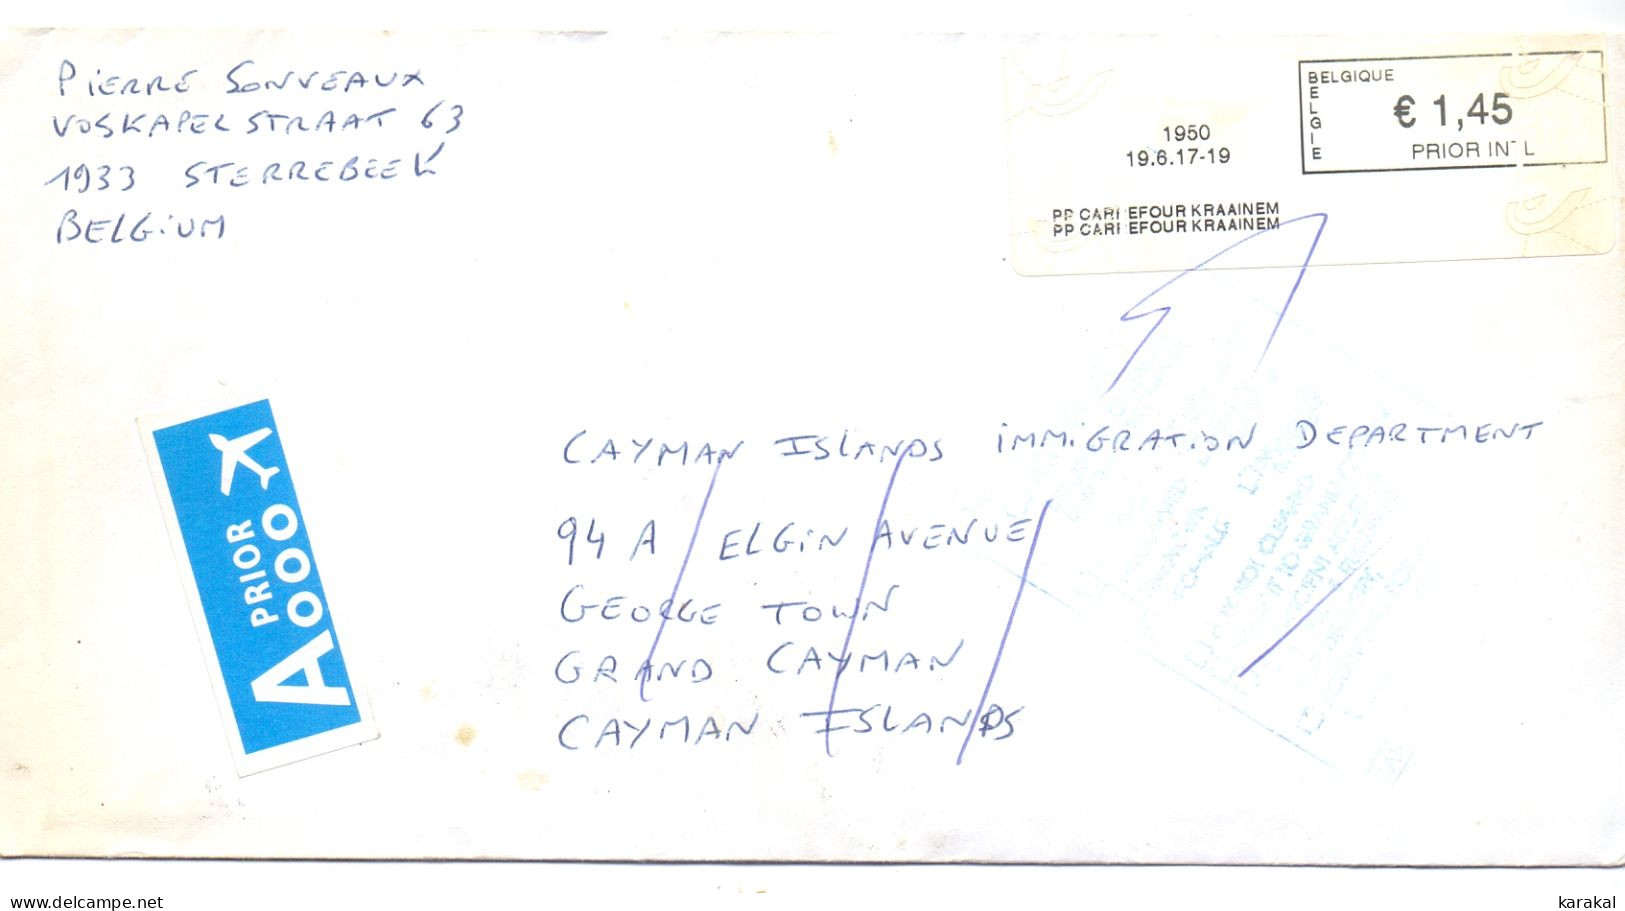 PiERRE SONVEAUX
VOSKAPELSTRAAT 63
1933 STERREBEEK
BELGiUM
BELGIQUE
BELGIE
€ 1,45
PRIOR
1950
19.6.17-19
PP CARREFOUR KRAAINEM
PP CARREFOUR KRAAINEM
PRIOR
A
CAYMAN ISLANDS iMMiGRATiON DEPARTMENT
94 A ELGiN AVENUE
GEORGE TOWN
GRAND CAYMAN
CAYMAN ISLANDS
delcampe.net
karakal